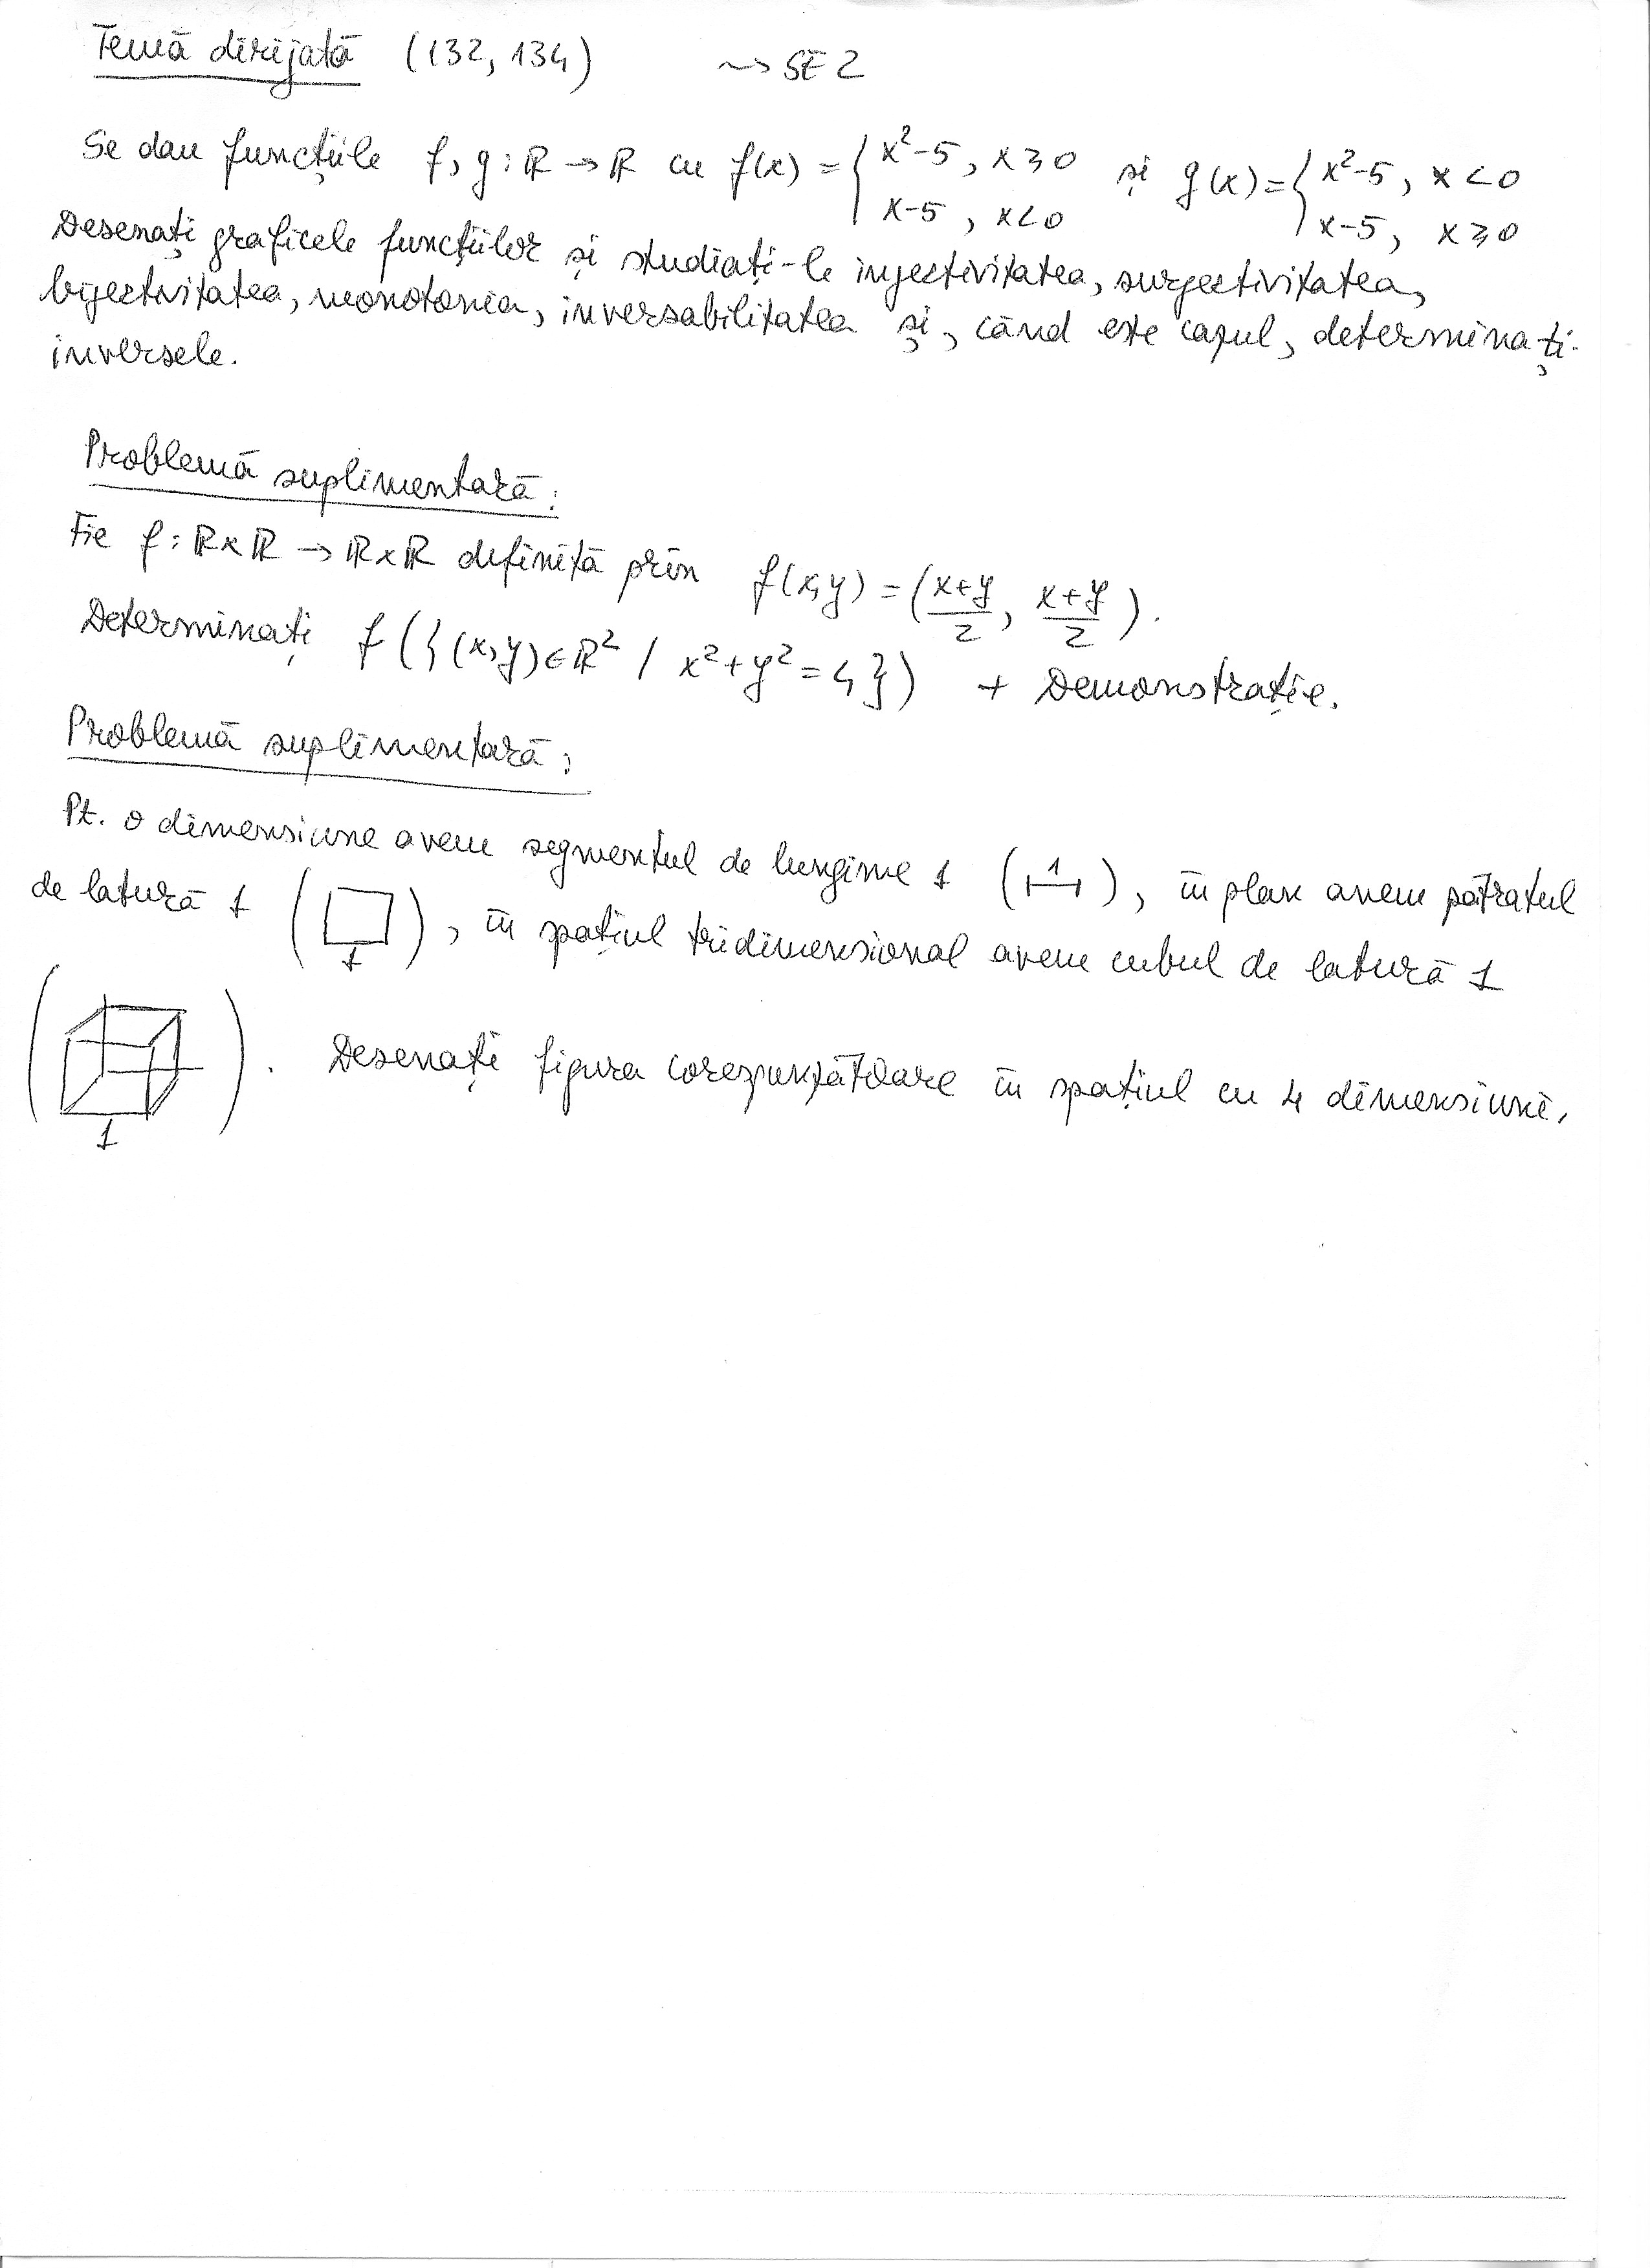 Temă dirijată (132, 134) ⇝ SE 2
Se dau funcțiile f, g : ℝ → ℝ cu f(x) = { x²-5, x ≥ 0 și g(x) = { x²-5, x < 0
x-5, x < 0 x-5, x ≥ 0
Desenați graficele funcțiilor și studiați-le injectivitatea, surjectivitatea,
bijectivitatea, monotonia, inversabilitatea și, când este cazul, determinați-
inversele.
Problemă suplimentară:
Fie f : ℝ×ℝ → ℝ×ℝ definită prin f(x,y) = (x+y/2, x+y/2).
Determinați f({(x,y)∈ℝ² / x²+y²=4}) + Demonstrație.
Problemă suplimentară:
Pt. o dimensiune avem segmentul de lungime 1 (1), în plan avem pătratul
de latură 1 (1), în spațiul tridimensional avem cubul de latură 1
(1). Desenați figura corespunzătoare în spațiul cu 4 dimensiuni.